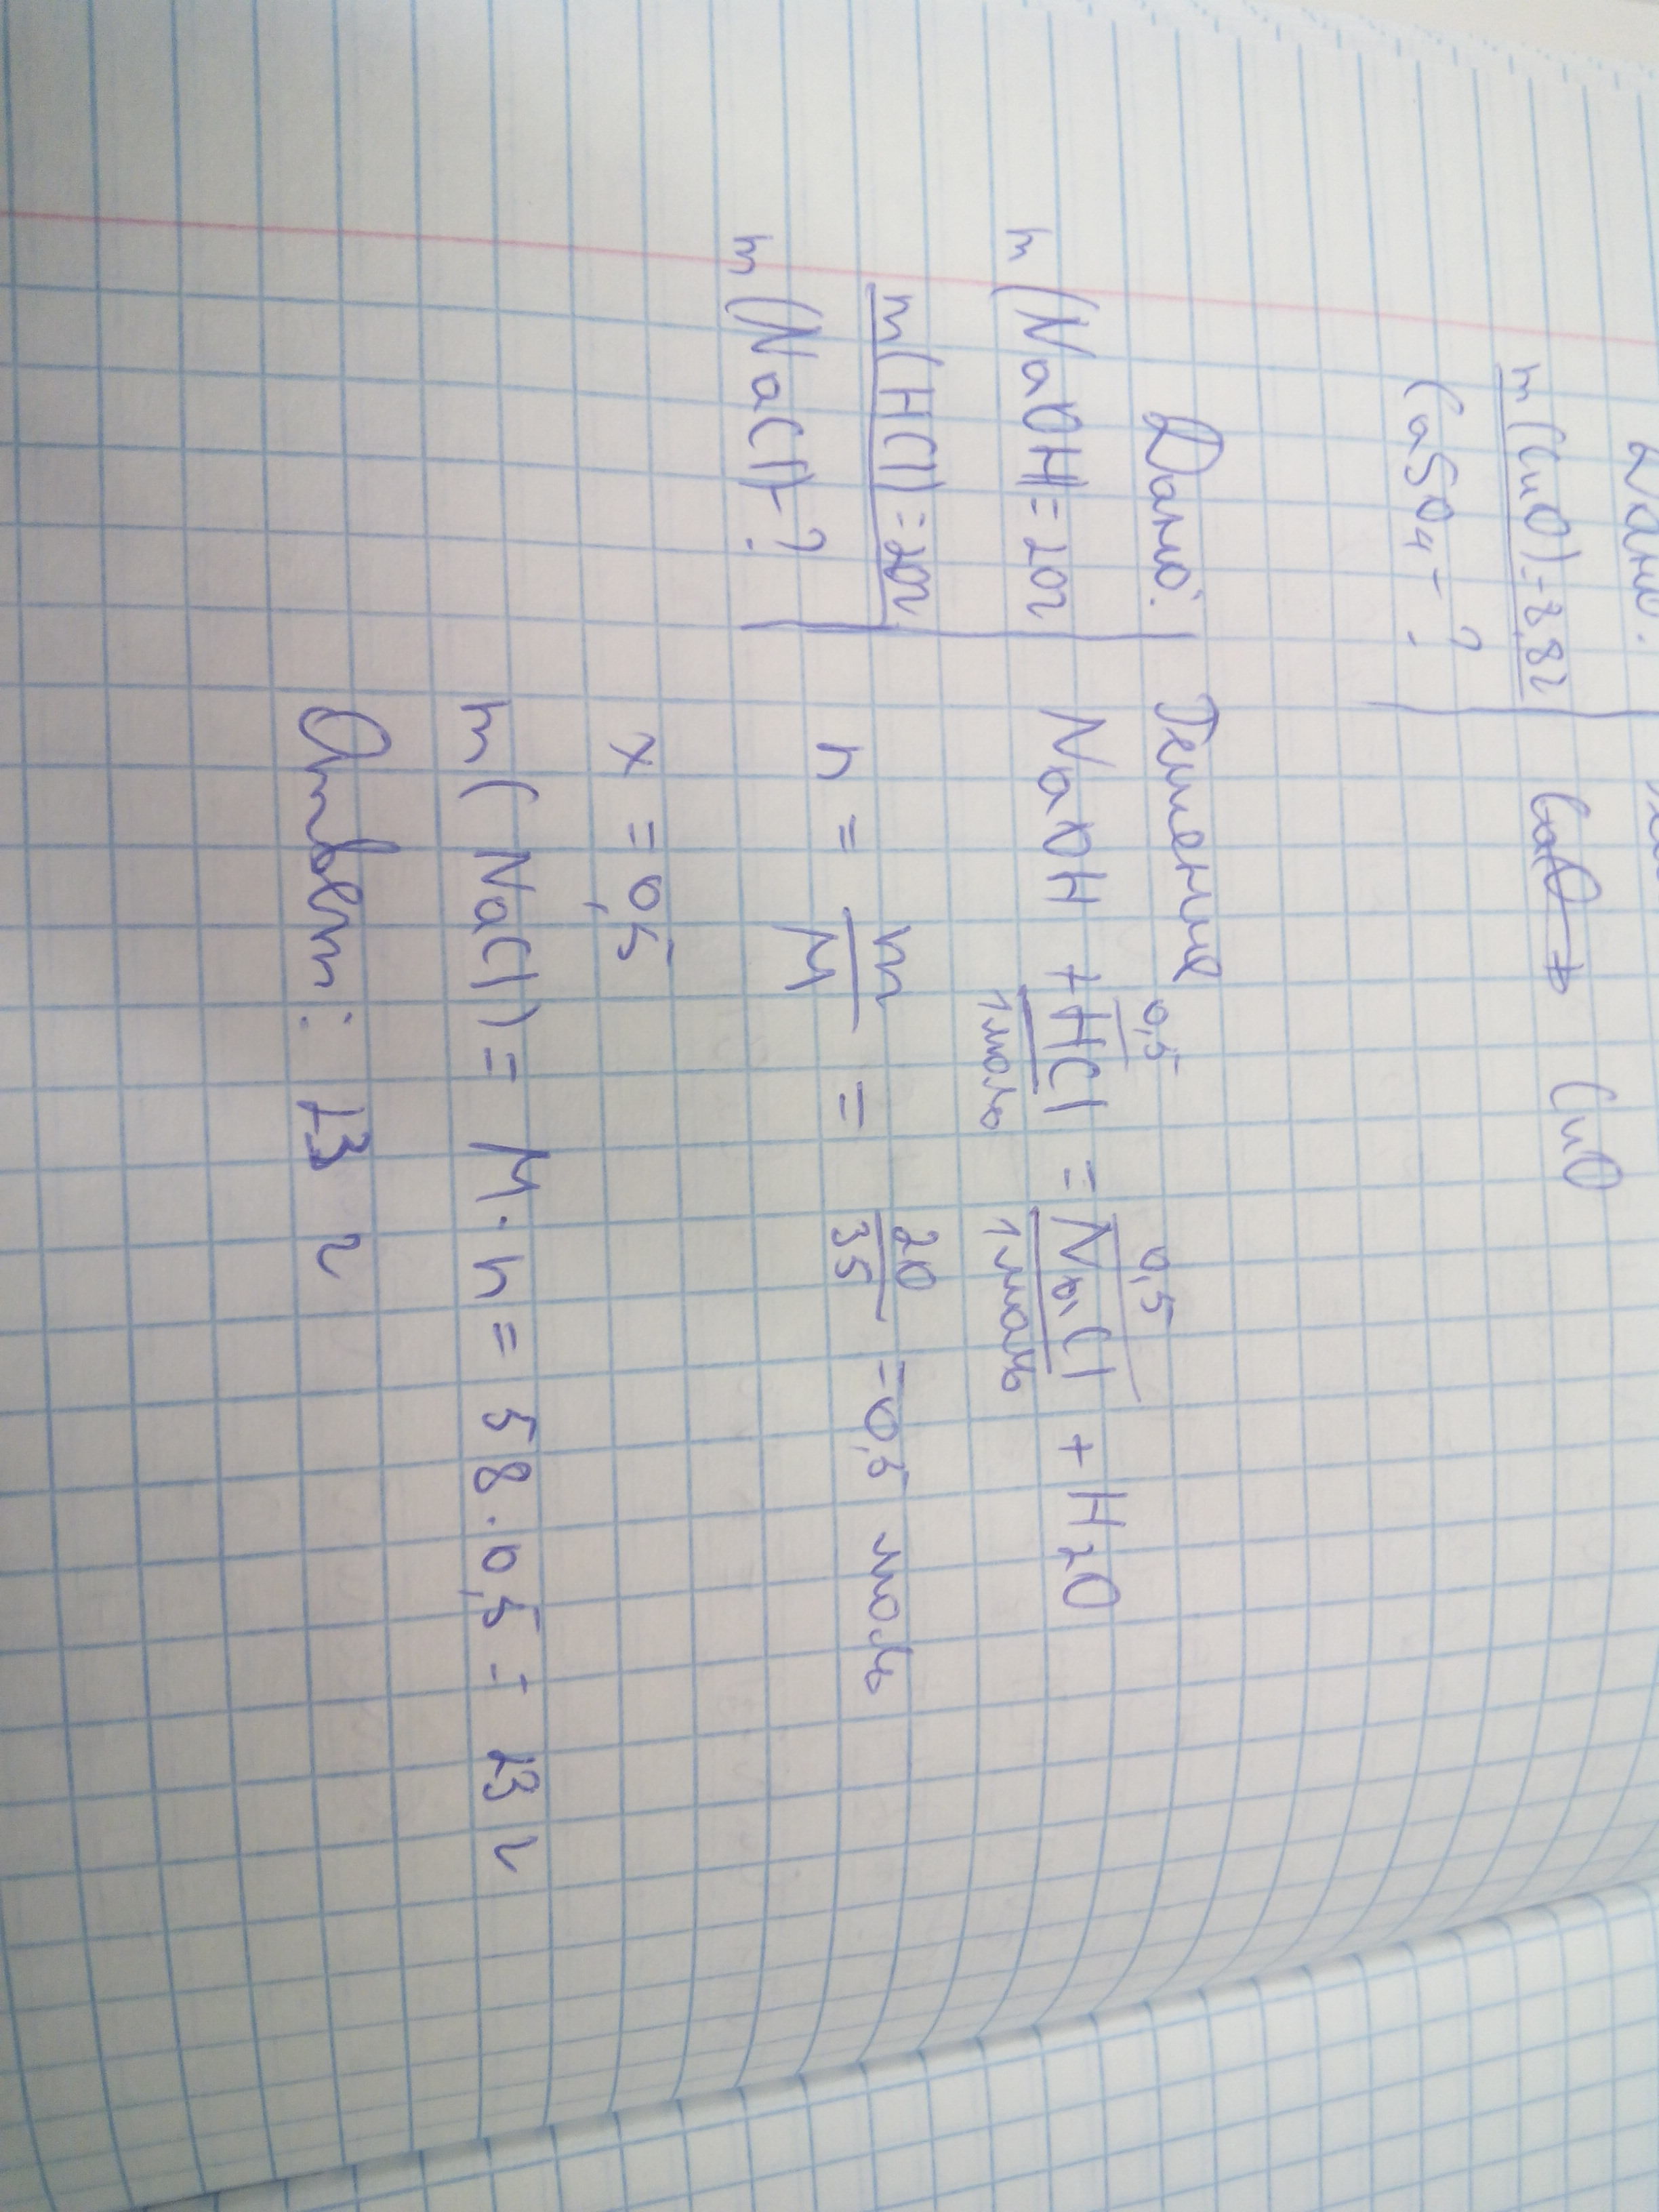 Дано:
m(CuO)-8,8г
CaSO4-?
CaO→ CuO
Дано:
m(NaOH)=20г
m(HCl)=20г
m(NaCl)-?
Решение
0,5 0,5
NaOH + HCl = NaCl + H2O
1 моль 1 моль
n = m/M = 20/35 = 0,5 моль
x = 0,5
m(NaCl) = M·n = 58·0,5 = 23 г
Ответ: 23 г